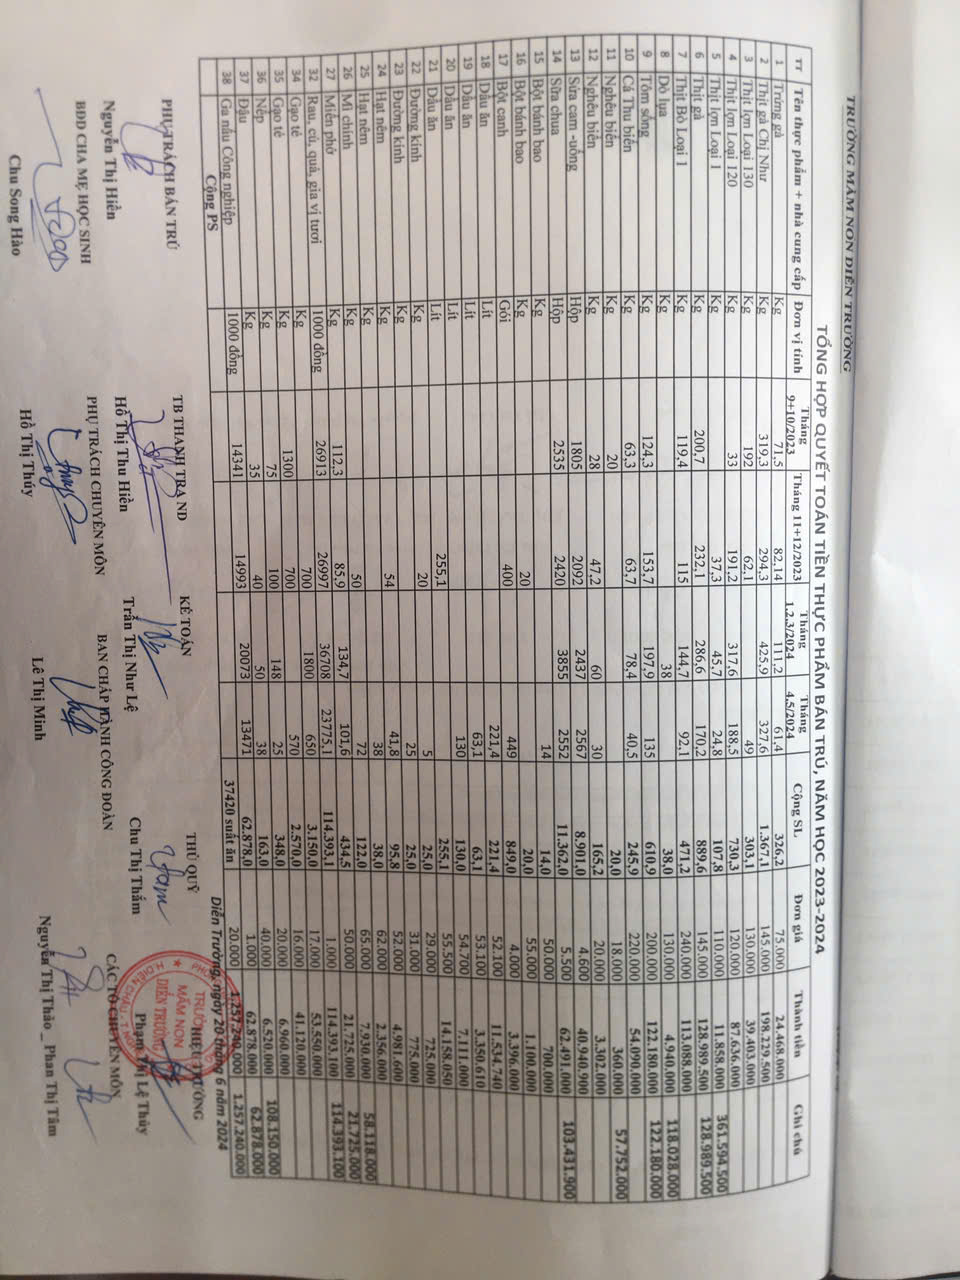 TRƯỜNG MẦM NON DIỄN TRƯỜNG
TỔNG HỢP QUYẾT TOÁN TIỀN THỰC PHẨM BÁN TRÚ, NĂM HỌC 2023-2024
TT Tên thực phẩm + nhà cung cấp Đơn vị tính Tháng 9+10/2023 Tháng 11+12/2023 Tháng 1,2,3/2024 Tháng 4,5/2024 Cộng SL Đơn giá Thành tiền Ghi chú
1 Trứng gà Kg 71,5 82,14 111,2 61,4 326,2 75.000 24.468.000
2 Thịt gà Chị Như Kg 319,3 294,3 425,9 327,6 1.367,1 145.000 198.229.500
3 Thịt lợn Loại 130 Kg 192 62,1 49 303,1 130.000 39.403.000
4 Thịt lợn Loại 120 Kg 33 191,2 317,6 188,5 730,3 120.000 87.636.000
5 Thịt lợn Loại 1 Kg 37,3 45,7 24,8 107,8 110.000 11.858.000 361.594.500
6 Thịt gà Kg 200,7 232,1 286,6 170,2 889,6 145.000 128.989.500 128.989.500
7 Thịt Bò Loại 1 Kg 119,4 115 144,7 92,1 471,2 240.000 113.088.000
8 Dò lụa Kg 38 38,0 130.000 4.940.000 118.028.000
9 Tôm sống Kg 124,3 153,7 197,9 135 610,9 200.000 122.180.000 122.180.000
10 Cá Thu biển Kg 63,3 63,7 78,4 40,5 245,9 220.000 54.090.000
11 Nghêu biển Kg 20 20,0 18.000 360.000 57.752.000
12 Nghêu biển Kg 28 47,2 60 30 165,2 20.000 3.302.000
13 Sữa cam -uống Hộp 1805 2092 2437 2567 8.901,0 4.600 40.940.900
14 Sữa chua Hộp 2535 2420 3855 2552 11.362,0 5.500 62.491.000 103.431.900
15 Bột bánh bao Kg 14 14,0 50.000 700.000
16 Bột bánh bao Kg 20 20,0 55.000 1.100.000
17 Bột canh Gói 400 449 849,0 4.000 3.396.000
18 Dầu ăn Lít 221,4 221,4 52.100 11.534.740
19 Dầu ăn Lít 63,1 63,1 53.100 3.350.610
20 Dầu ăn Lít 130 130,0 54.700 7.111.000
21 Dầu ăn Lít 255,1 255,1 55.500 14.158.050
22 Đường kính Kg 20 5 25,0 29.000 725.000
23 Đường kính Kg 25 25,0 31.000 775.000
24 Hạt nêm Kg 54 41,8 95,8 52.000 4.981.600
25 Hạt nêm Kg 38 38,0 62.000 2.356.000
26 Mì chính Kg 50 72 122,0 65.000 7.930.000 58.118.000
27 Miến phở Kg 112,3 85,9 134,7 101,6 434,5 50.000 21.725.000 21.725.000
32 Rau, củ, quả, gia vị tươi 1000 đồng 26913 26997 36708 23775,1 114.393,1 1.000 114.393.100 114.393.100
34 Gạo tẻ Kg 700 1800 650 3.150,0 17.000 53.550.000
35 Gạo tẻ Kg 1300 700 570 2.570,0 16.000 41.120.000
36 Nếp Kg 75 100 148 25 348,0 20.000 6.960.000
37 Đậu Kg 35 40 50 38 163,0 40.000 6.520.000 108.150.000
38 Ga nấu Công nghiệp 1000 đồng 14341 14993 20073 13471 62.878,0 1.000 62.878.000 62.878.000
Cộng PS 37420 suất ăn 20.000 1.257.240.000 1.257.240.000
Diễn Trường, ngày 20 tháng 6 năm 2024
PHỤ TRÁCH BÁN TRÚ TB THANH TRA ND KẾ TOÁN THỦ QUỸ HIỆU TRƯỞNG
TRƯỜNG
MẦM NON
DIỄN TRƯỜNG
H.DIỄN CHÂU
Nguyễn Thị Hiền Hồ Thị Thu Hiền Trần Thị Như Lệ Chu Thị Thắm Phạm Thị Lệ Thủy
BĐD CHA MẸ HỌC SINH PHỤ TRÁCH CHUYÊN MÔN BAN CHẤP HÀNH CÔNG ĐOÀN CÁC TỔ CHUYÊN MÔN
Chu Song Hào Hồ Thị Thúy Lê Thị Minh Nguyễn Thị Thảo _ Phan Thị Tâm